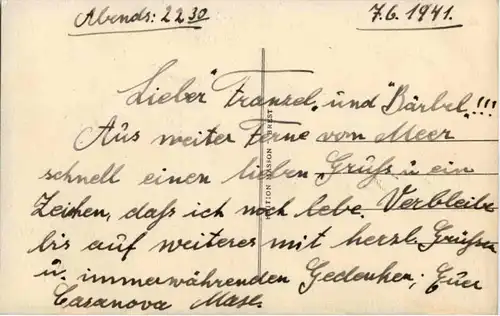 Abends: 22 30
7.6.1941.
Lieber "Franzel" und "Bärbel"!!!
Aus weiter Ferne vom Meer
schnell einen lieben Gruß u ein
Zeichen, daß ich noch lebe. Verbleibe
bis auf weiteres mit herzl. Grüßen
u. immerwährenden Gedenken; Euer
Casanova Maxe.
EDITION MASSON BREST